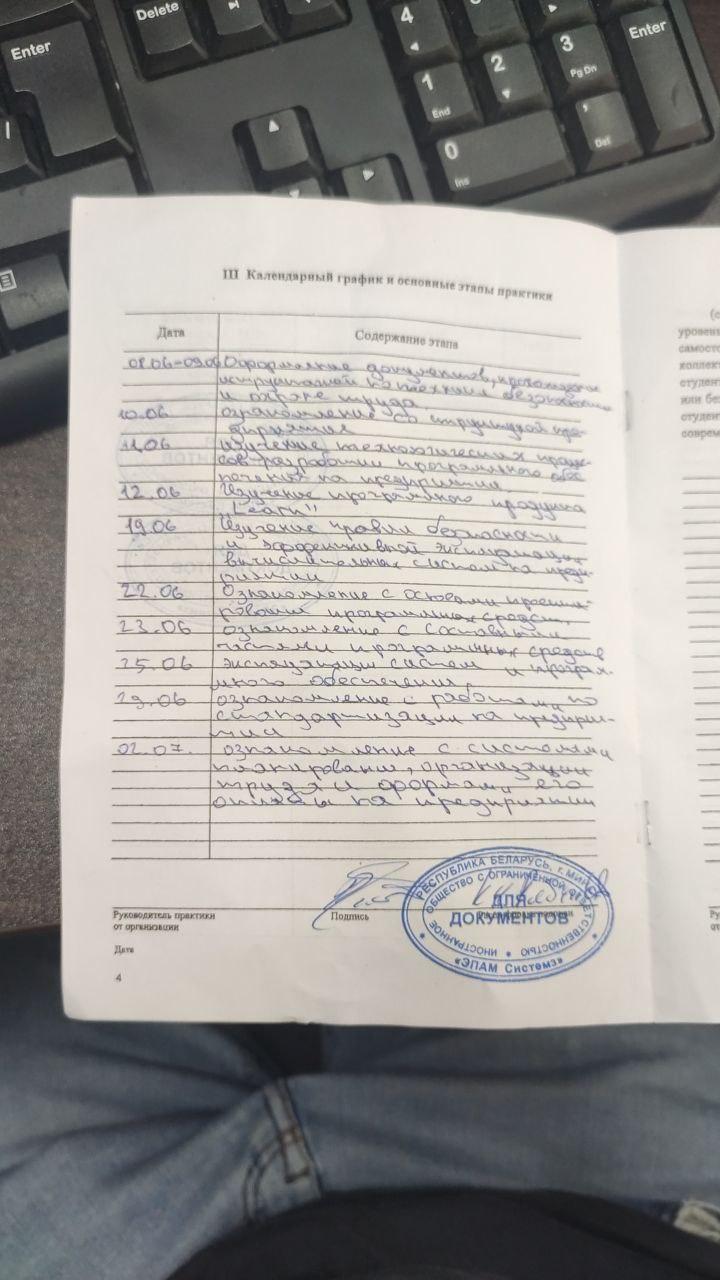 Enter
Delete
4
1
End
2
3
Pg Dn
Enter
0
Ins
Del
III Календарный график и основные этапы практики
Дата
Содержание этапа
08.06-09.06 Оформление документов, проведение
по технике безопасности
и охране труда.
10.06 ознакомление со структурой пред-
приятия
11.06 изучение технологических процес-
сов разработки программного обес-
печения на предприятии
12.06 Изучение программного продукта
"Learn"
19.06 Изучение правил безопасности
и эффективной эксплуатации
вычислительных систем на предп-
риятии
22.06 Ознакомление с основами проекти-
рования программных средств.
23.06 ознакомление с составными
частями программных средств
25.06 эксплуатации систем и програм-
много обеспечения
29.06 ознакомление с работами по
стандартизации на предприя-
тии
02.07. ознакомление с системами
планирования, организации
труда и формами его
оплаты на предприятии
Руководитель практики
от организации
Подпись
РЕСПУБЛИКА БЕЛАРУСЬ, г. МИНСК
ИНОСТРАННОЕ ОБЩЕСТВО С ОГРАНИЧЕННОЙ ОТВЕТСТВЕННОСТЬЮ
ДЛЯ
ДОКУМЕНТОВ
«ЭПАМ Системз»
Дата
4
(с
уровень
самосто
коллек
студент
или бе
студен
соврем
Р
от